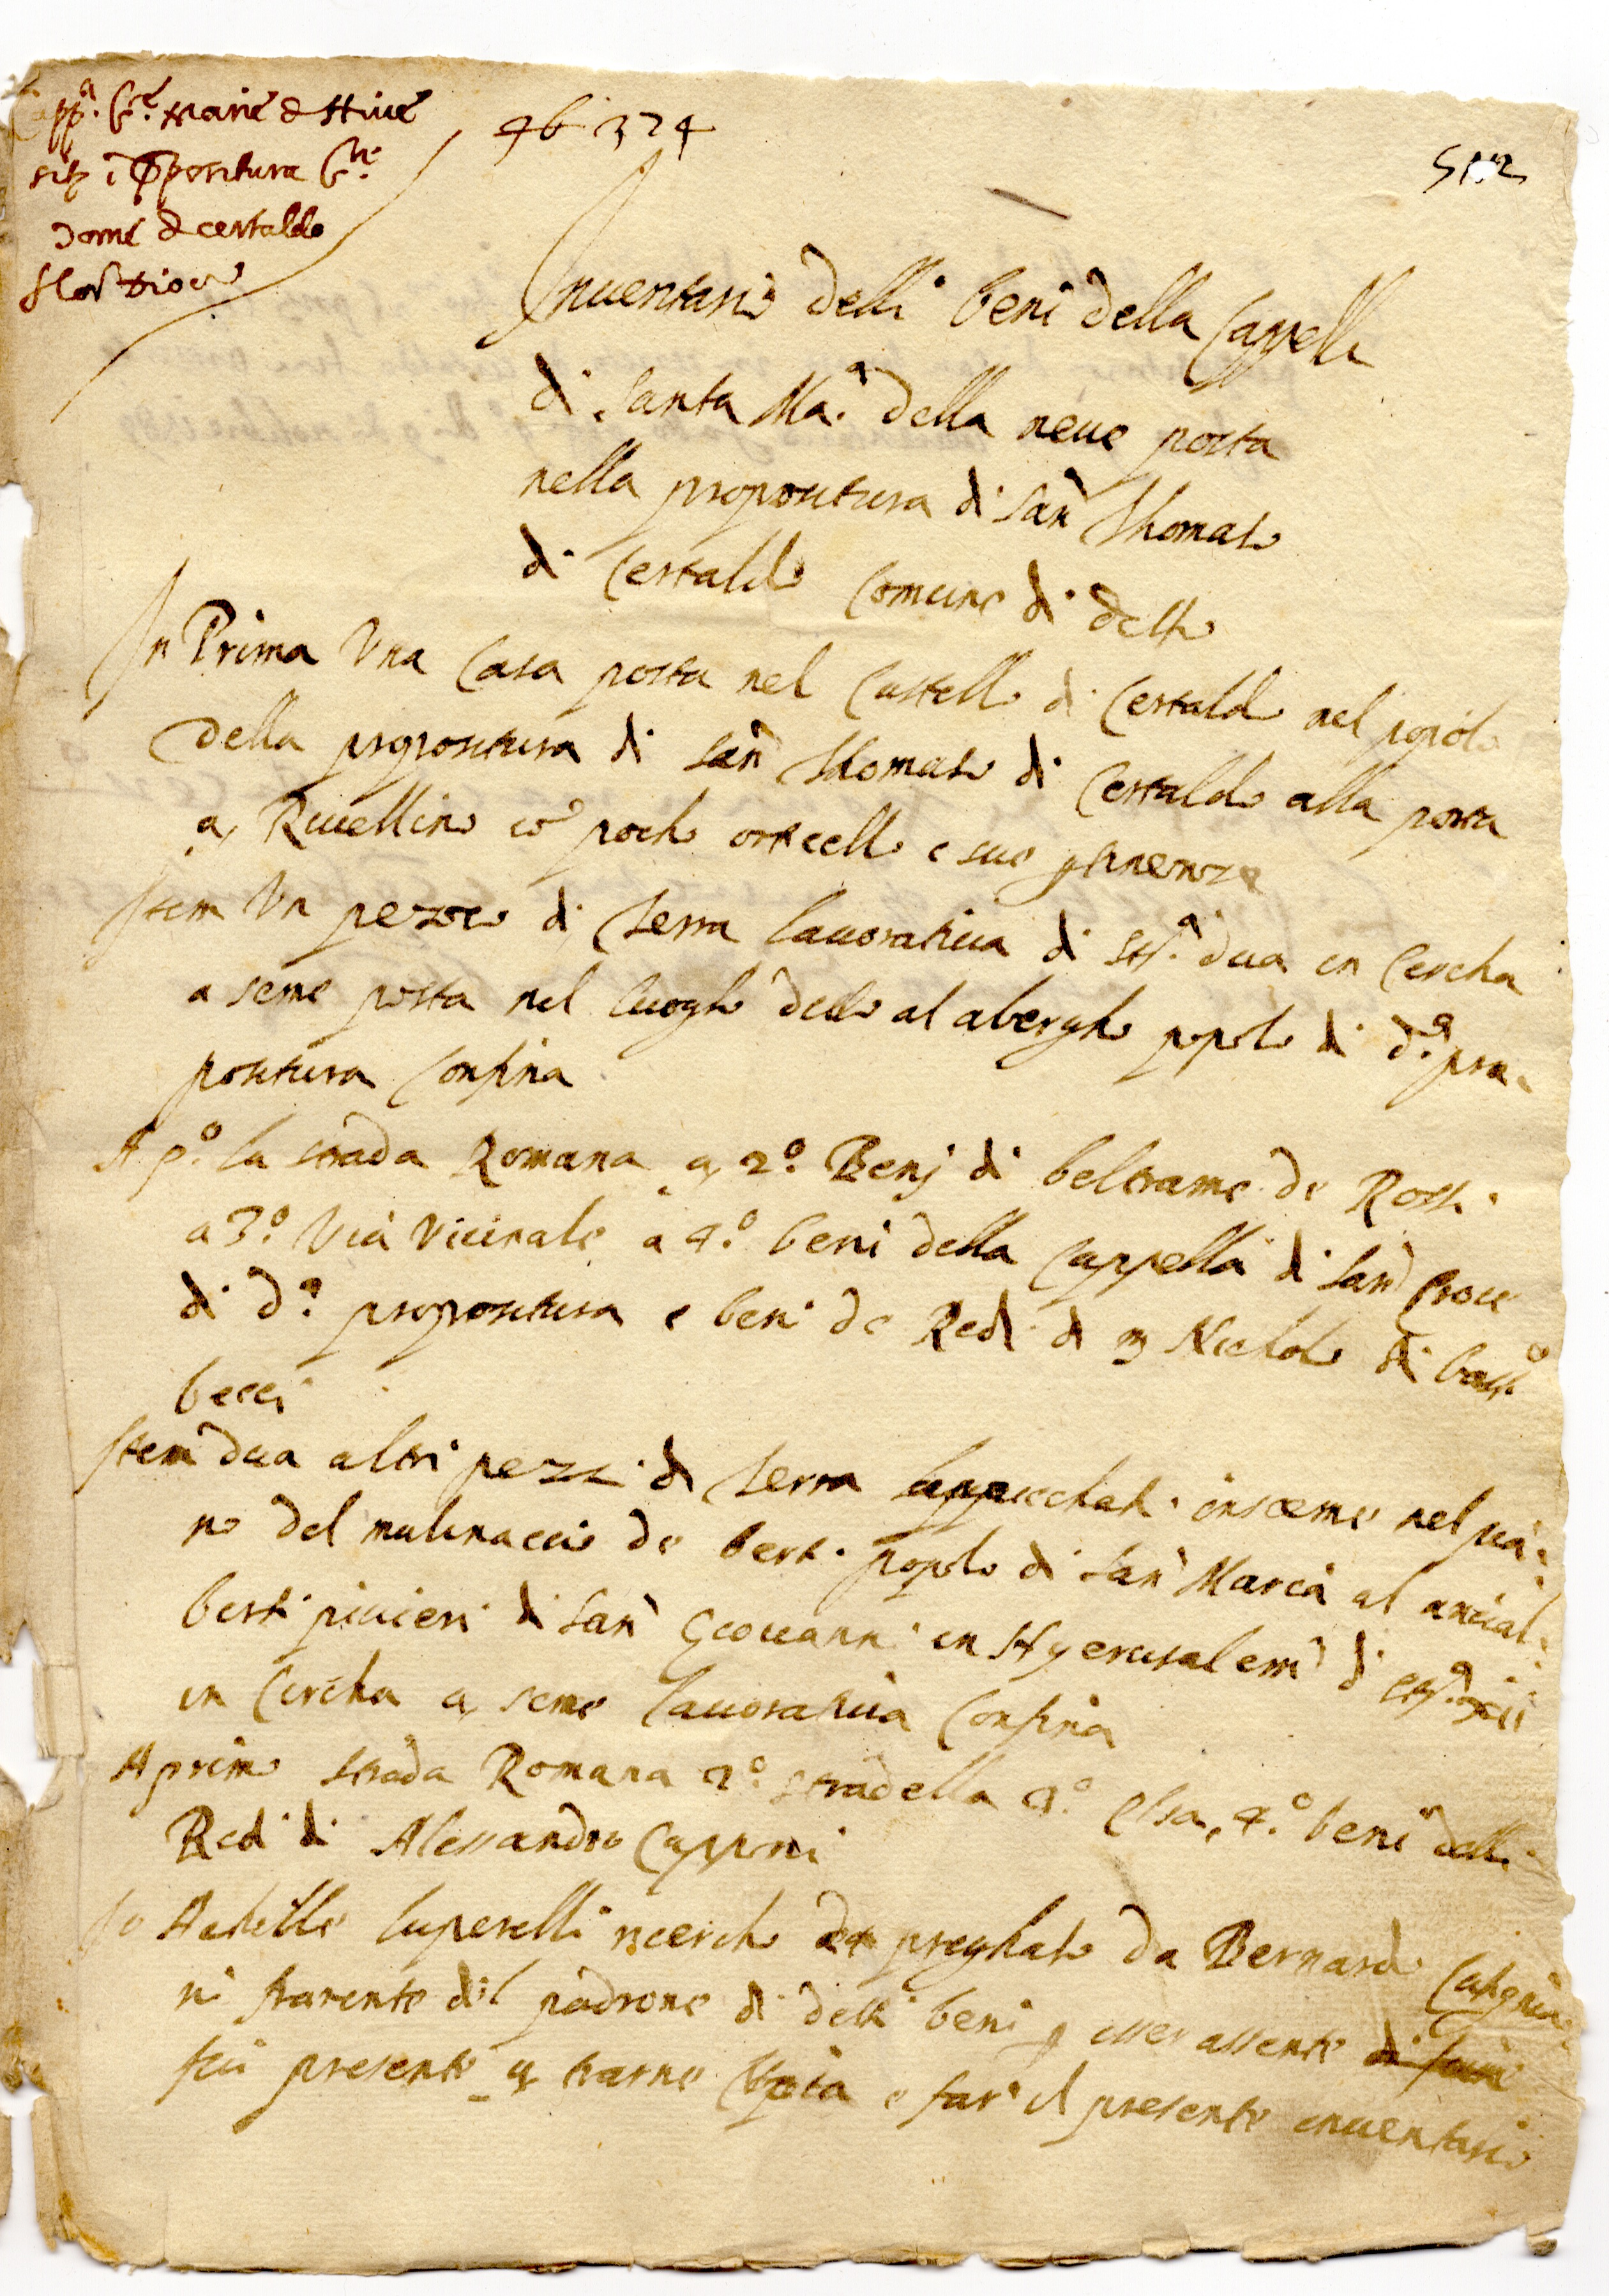 Capp.ª S.te Marie d Nive
sitę i ppositura S.ti
Tome d certaldo
flor.ª Dioc
96 324
Inventario delli beni della Cappella
di santa Ma.ª della neve posta
nella propositura di san Thomaso
di Certaldo Comune di detto
In Prima Una Casa posta nel Castello di Certaldo nel popolo
della propositura di san Thomaso di Certaldo alla porta
a Rivellino cō pocho orticello e sue ptinenze
Item Un pezzo di terra lavorativa di stª. dua in Circha
a seme posta nel luogho detto al abergho popolo di d.ª pro
positura Confina
A p.º la strada Romana a 2.º Benj di beltramo de Rossi
a 3.º Via Vicinale a 4.º beni della Cappella di san Croce
di d.ª propositura e beni de Redi di m Nicholo di
becci
Item dua altri pezzi di terra appicchati insieme nel pia
no del mulinaccio de berti popolo di san Maria al ancial
berti pivieri di san Giovanni in Hyerusalem di
in Circha a seme lavorativa Confina
A primo strada Romana 2.º stradella 3.º Elsa, 4.º beni delli
Redi di Alessandro Capponi
Io Achille luperelli ricercho et preghato da Bernardo
ni parente del padrone di detti beni p esser assente
fui presente a trarne Copia e far il presente inventario